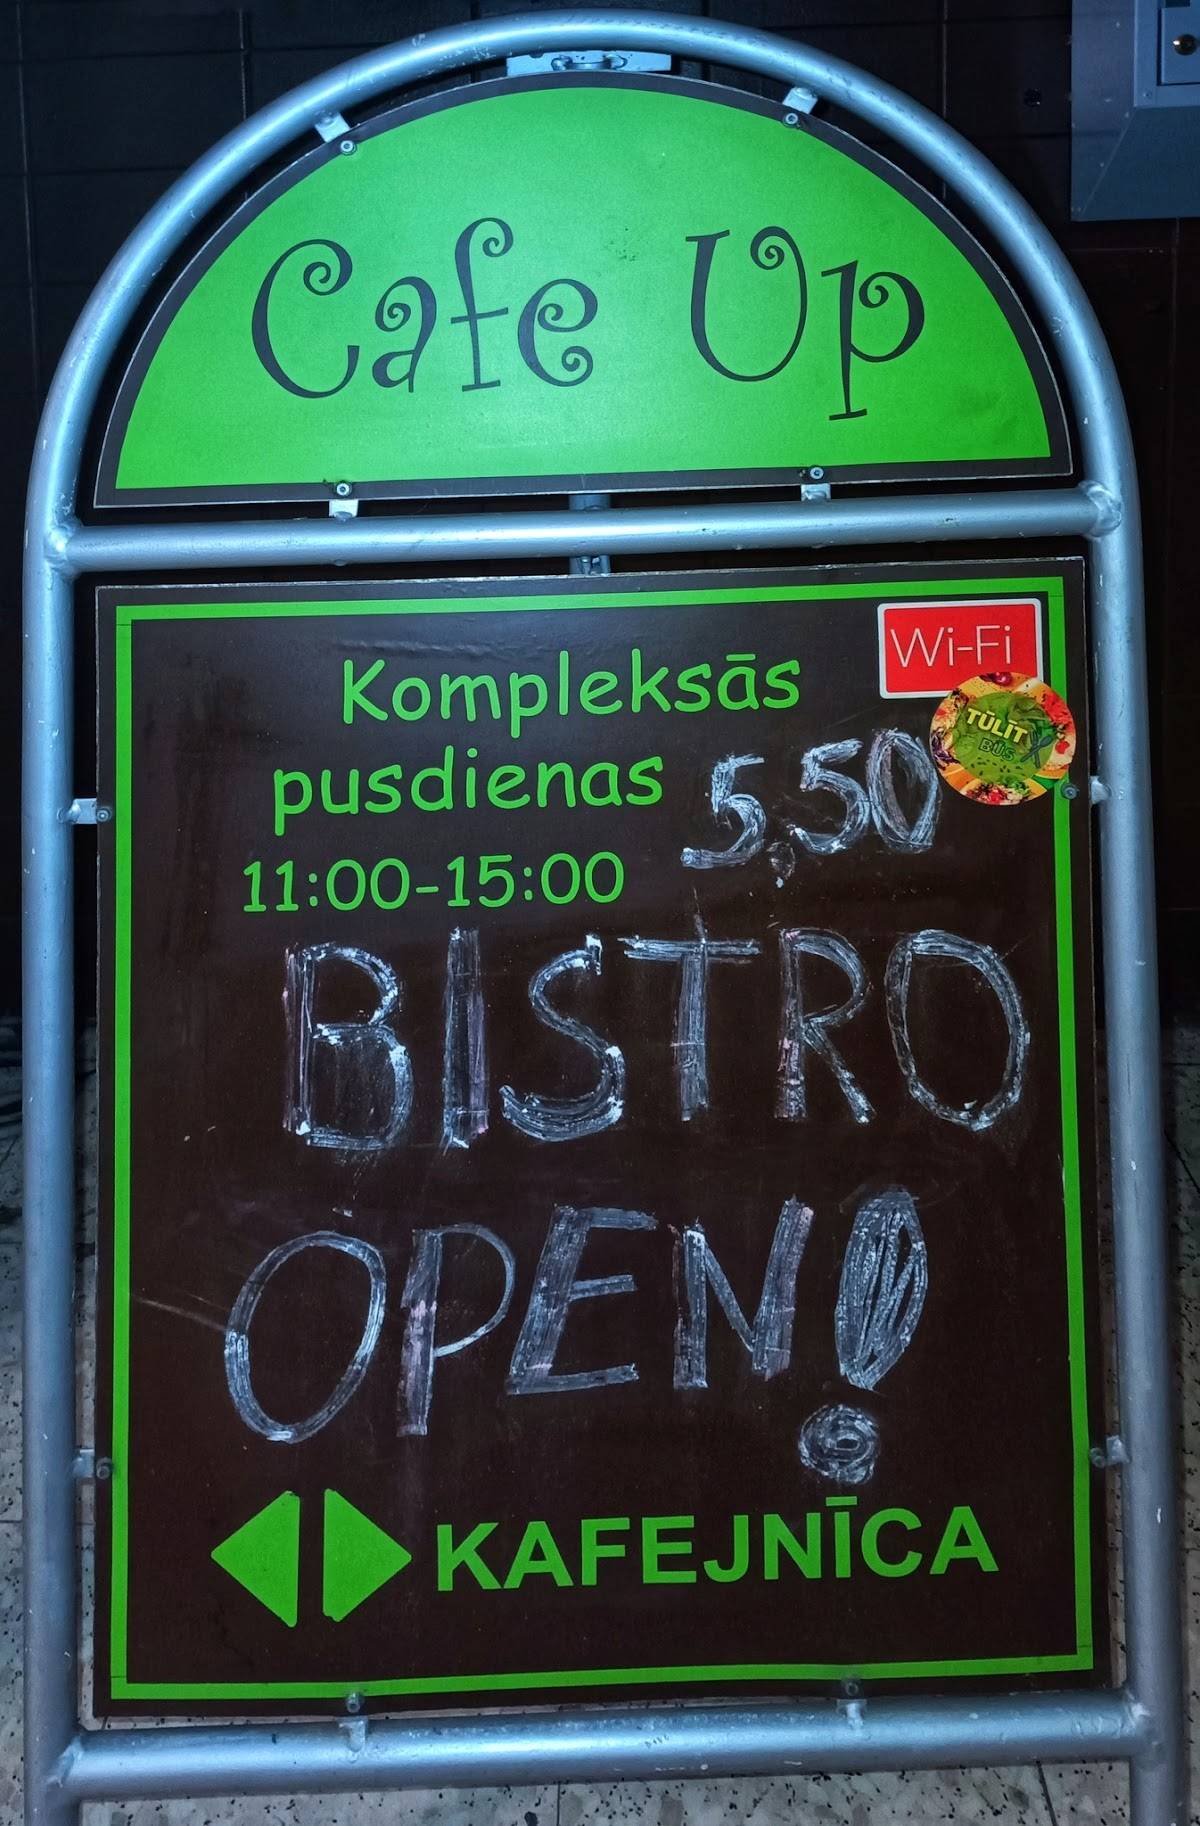 Cafe Up
Wi-Fi
TŪLĪT
BŪS
Kompleksās
pusdienas 5,50
11:00-15:00
BISTRO
OPEN!
KAFEJNĪCA